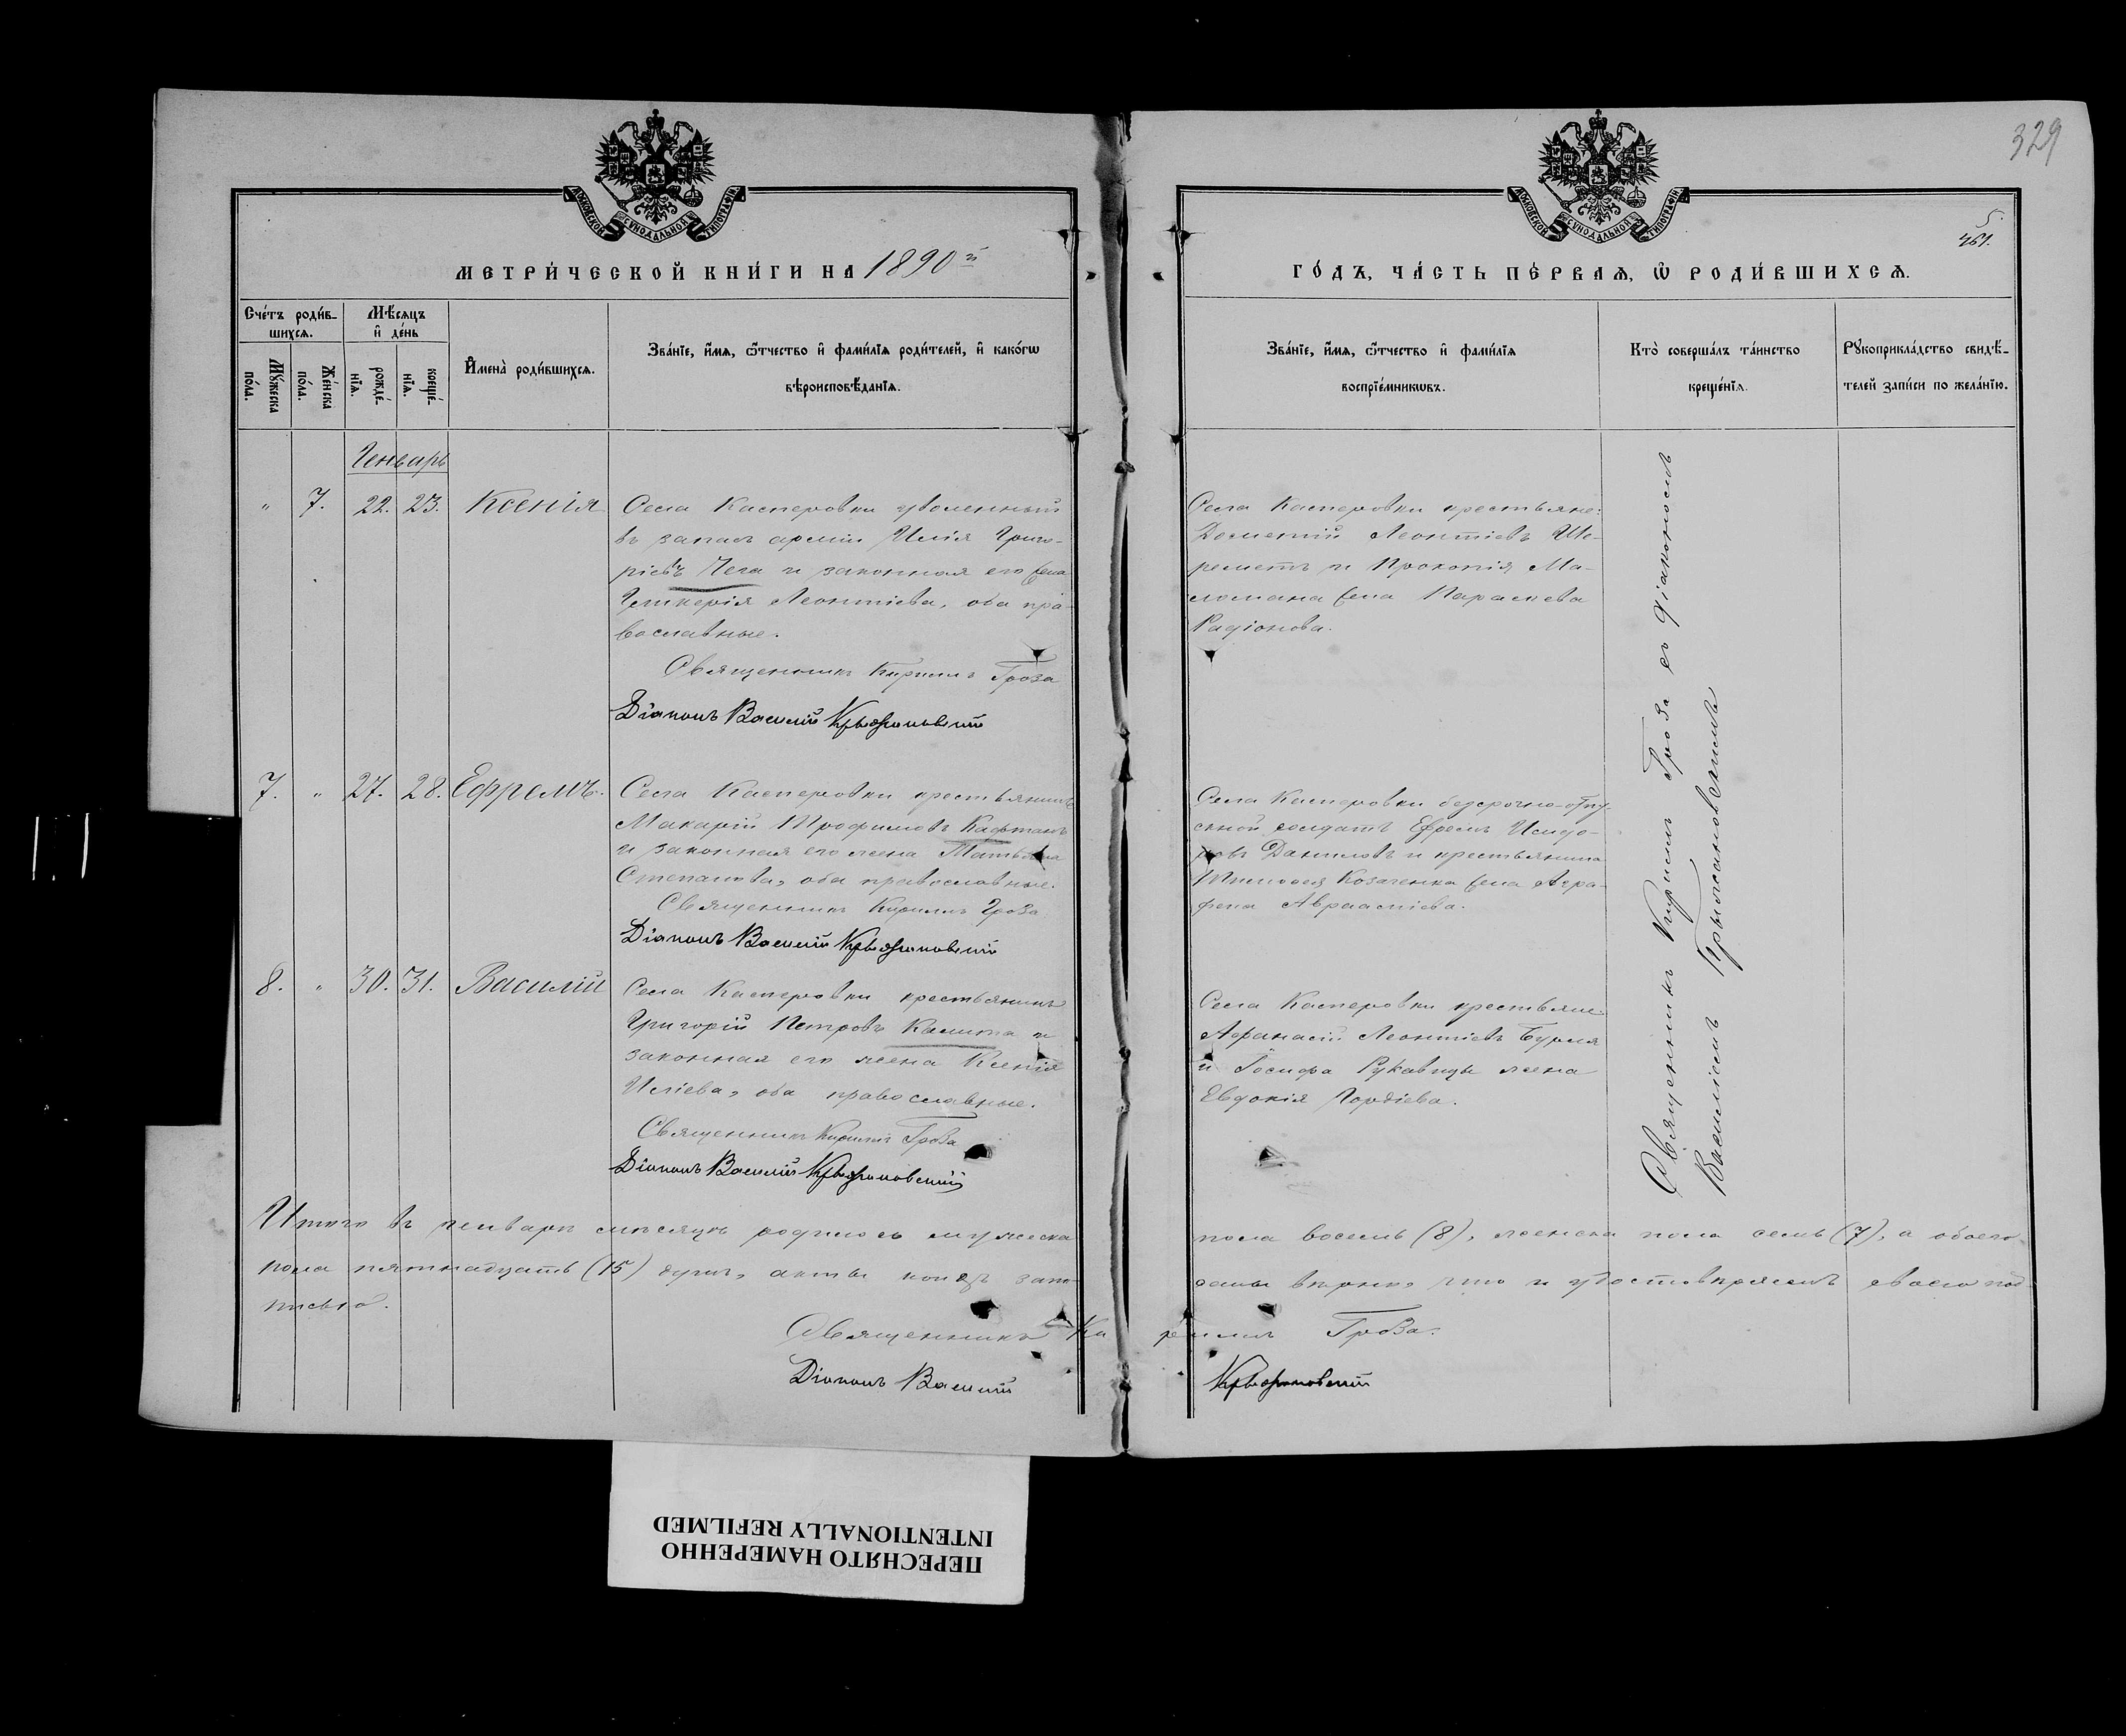 329
МОСКОВСКОЙ СѴНОДАЛЬНОЙ ТИПОГРАФІИ.
МОСКОВСКОЙ СѴНОДАЛЬНОЙ ТИПОГРАФІИ.
5.
461.
МЕТРИ́ЧЕСКОЙ КНИ́ГИ НА 1890й
ГО́ДЪ, ЧА́СТЬ ПЕ́РВАѦ, Ѽ РОДИ́ВШИХСѦ.
Сче́тъ роди́в-
шихсѧ.
Мꙋ́жеска
по́ла.
Же́нска
по́ла.
Мѣ́сѧцъ
и҆ де́нь
рожде́-
нїѧ.
креще́-
нїѧ.
И҆мена̀ роди́вшихсѧ.
Зва́нїе, и҆́мѧ, ѻ҆́тчество и҆ фами́лїѧ роди́телей, и҆ како́гѡ
вѣроисповѣ́данїѧ.
Зва́нїе, и҆́мѧ, ѻ҆́тчество и҆ фами́лїѧ
воспрїе́мникѡвъ.
Кто̀ соверша́лъ та́инство
креще́нїѧ.
Рꙋкоприкла́дство свидѣ́-
телей за́писи по жела́нїю.
Генварь
" 7. 22. 23. Ксенія
Села Касперовки уволенный
въ запасъ арміи Илія Григо-
ріевъ Чега и законная его жена
Гликерія Леонтіева, оба пра-
вославные.
Священникъ Кириллъ Гроза
Діаконъ Василій Крыжановскій
Села Касперовки крестьяне:
Дометій Леонтіевъ Ше-
реметъ и Прокопія Ма-
ломана жена Параскева
Радіонова.
7. " 27. 28. Ефремъ.
Села Касперовки крестьянинъ
Макарій Трофимовъ Кафтанъ
и законная его жена
Степанова, оба православные.
Священникъ Кириллъ Гроза
Діаконъ Василій Крыжановскій
Села Касперовки безсрочно-отпу-
скной солдатъ Ефремъ Исидо-
ровъ Даниловъ и крестьянина
Тимофея Козаченка жена Агра-
фена Авраамiева.
8. " 30. 31. Василій
Села Касперовки крестьянинъ
Григорій Петровъ Калита и
законная его жена Ксенія
Иліева, оба православные.
Священникъ Кириллъ Гроза
Діаконъ Василій Крыжановскій
Села Касперовки крестьяне:
Афанасій Леонтіевъ Бурля
и Іосифа Рукавицы жена
Евдокія Гордіева.
Священникъ Кириллъ Гроза съ діакономъ
Василіемъ Крыжановскимъ
Итого въ генварѣ мѣсяцѣ родилось мужеска пола восемь (8), женска пола семь (7), а обоего
пола пятнадцать (15) душъ, акты коихъ запи- саны вѣрно, что и удостовѣряемъ своею под-
писью.
Священникъ Ки риллъ Гроза.
Діаконъ Василій Крыжановскій
ПЕРЕСНЯТО НАМЕРЕННО
INTENTIONALLY REFILMED